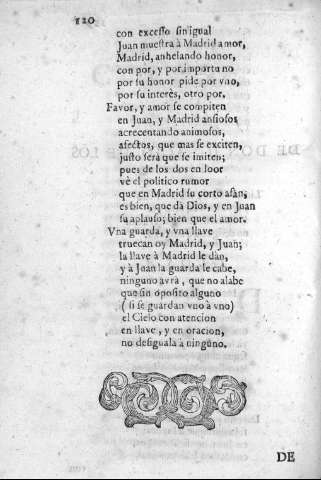 120
con excesso sin igual
Juan muestra à Madrid amor,
Madrid, anhelando honor,
con por, y por importuno
por su honor pide por vno,
por su interès, otro por.
Favor, y amor se compiten
en Juan, y Madrid ansiosos
acrecentando animosos,
afectos, que mas se exciten,
justo serà que se imiten;
pues de los dos en loor
vè el politico rumor
que en Madrid su corto afàn;
es bien, que dà Dios, y en Juan
su aplauso; bien que el amor.
Vna guarda, y vna llave
truecan oy Madrid, y Juan;
la llave à Madrid le dàn,
y à Juan la guarda le cabe,
ninguno avrà, que no alabe
que sin oposito alguno
( si se guardan vno à vno)
el Cielo con atencion
en llave, y en oracion,
no desiguala à ninguno.
DE